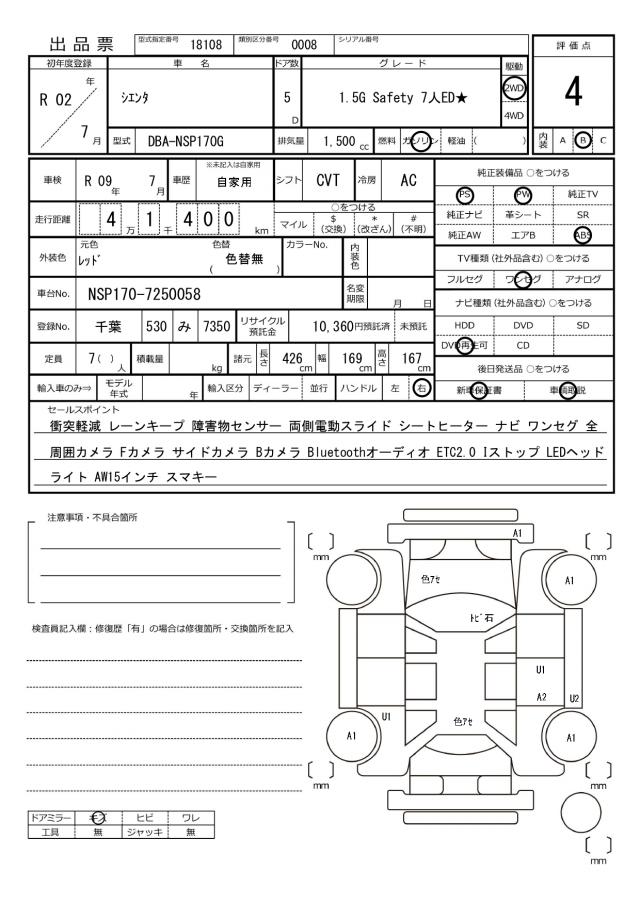 出品票 型式指定番号 18108 類別区分番号 0008 シリアル番号
評価点
4
初年度登録 車名 ドア数 グレード 駆動
R 02 年 7 月 シエンタ 5 D 1.5G Safety 7人ED★ 2WD 4WD
型式 DBA-NSP170G 排気量 1,500 cc 燃料 ガソリン 軽油 ( )
内装 A B C
車検 R 09 年 7 月 車歴 ※未記入は自家用 自家用 シフト CVT 冷房 AC
走行距離 4 万 1 千 4 0 0 km ○をつける マイル $ (交換) * (改ざん) # (不明)
外装色 元色 レッド 色替 ( 色替無 ) カラーNo. 内装色
車台No. NSP170-7250058 名変期限 月 日
登録No. 千葉 530 み 7350 リサイクル預託金 10,360円預託済 未預託
定員 7( ) 人 積載量 kg 諸元 長さ 426 cm 幅 169 cm 高さ 167 cm
輸入車のみ⇒ モデル年式 年 輸入区分 ディーラー 並行 ハンドル 左 右
純正装備品 ○をつける
PS PW 純正TV
純正ナビ 革シート SR
純正AW エアB ABS
TV種類 (社外品含む) ○をつける
フルセグ ワンセグ アナログ
ナビ種類 (社外品含む) ○をつける
HDD DVD SD
DVD再生可 CD
後日発送品 ○をつける
新車保証書 車輌取説
セールスポイント
衝突軽減 レーンキープ 障害物センサー 両側電動スライド シートヒーター ナビ ワンセグ 全
周囲カメラ Fカメラ サイドカメラ Bカメラ Bluetoothオーディオ ETC2.0 Iストップ LEDヘッド
ライト AW15インチ スマキー
注意事項・不具合箇所
検査員記入欄：修復歴「有」の場合は修復箇所・交換箇所を記入
ドアミラー キズ ヒビ ワレ
工具 無 ジャッキ 無
A1
mm
mm
色アセ
A1
トビ石
U1
A2
U2
U1
色アセ
A1
A1
mm
mm
mm